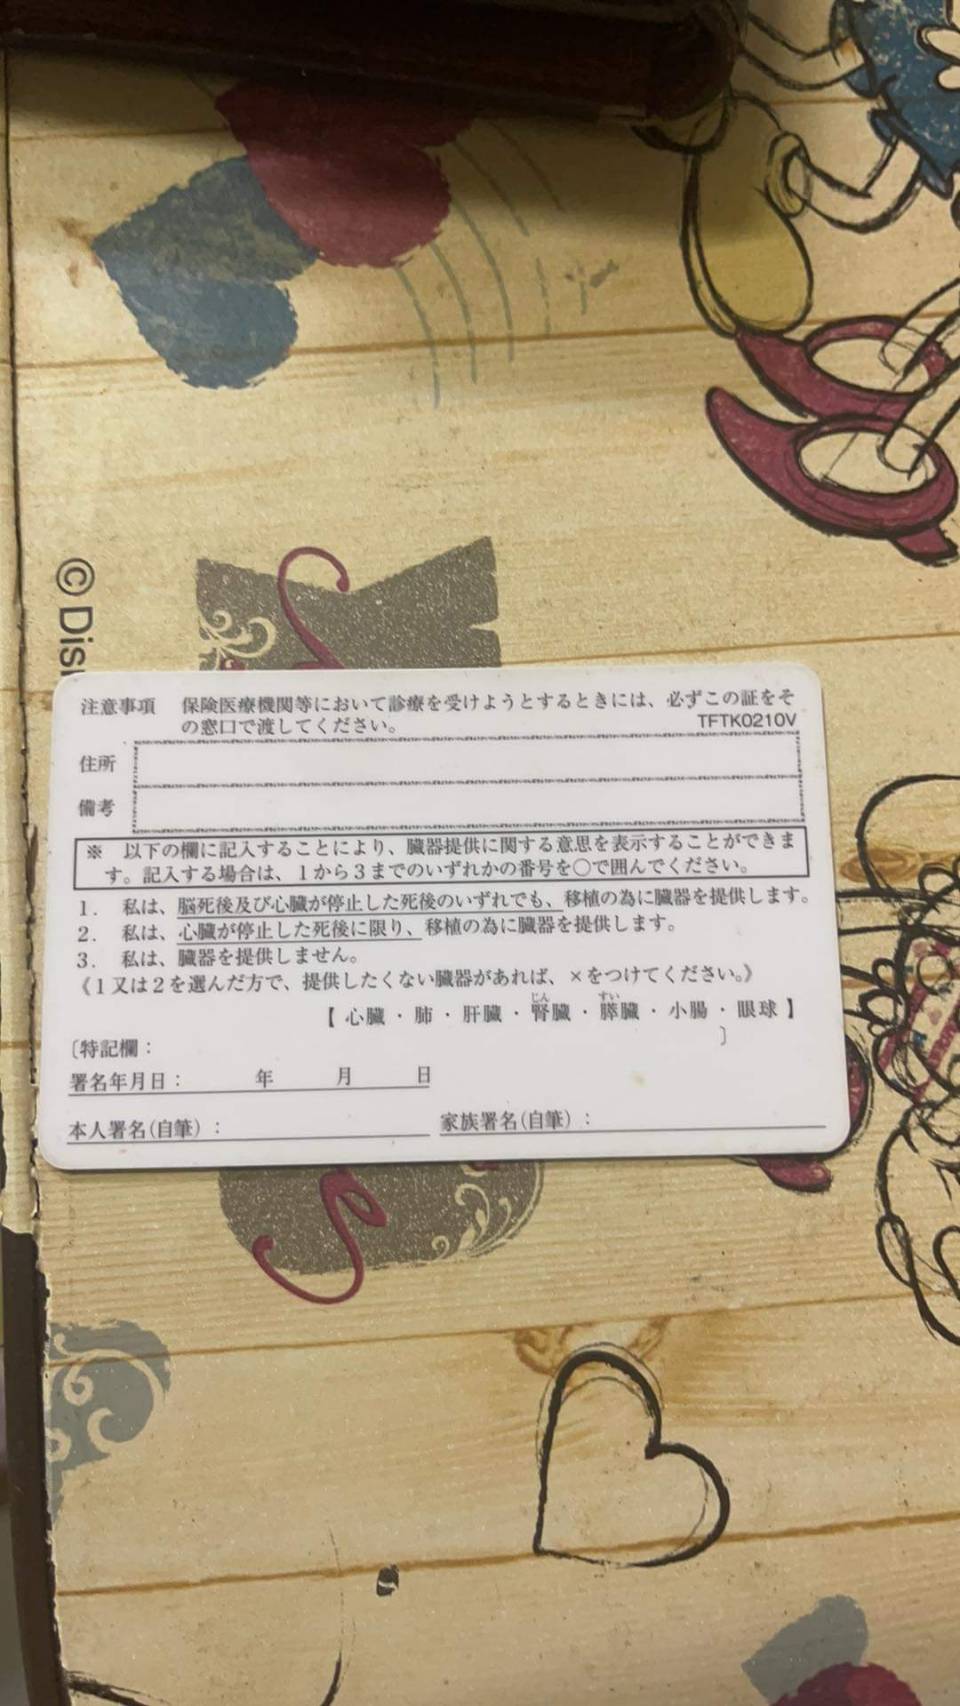 © Dis
注意事項 保険医療機関等において診療を受けようとするときには、必ずこの証をそ
の窓口で渡してください。 TFTK0210V
住所
備考
※ 以下の欄に記入することにより、臓器提供に関する意思を表示することができま
す。記入する場合は、1から3までのいずれかの番号を〇で囲んでください。
1. 私は、脳死後及び心臓が停止した死後のいずれでも、移植の為に臓器を提供します。
2. 私は、心臓が停止した死後に限り、移植の為に臓器を提供します。
3. 私は、臓器を提供しません。
《1又は2を選んだ方で、提供したくない臓器があれば、×をつけてください。》
【 心臓 ・ 肺 ・ 肝臓 ・ 腎臓 ・ 膵臓 ・ 小腸 ・ 眼球 】
じん すい
〔特記欄： 〕
署名年月日： 年 月 日
本人署名(自筆)： 家族署名(自筆)：